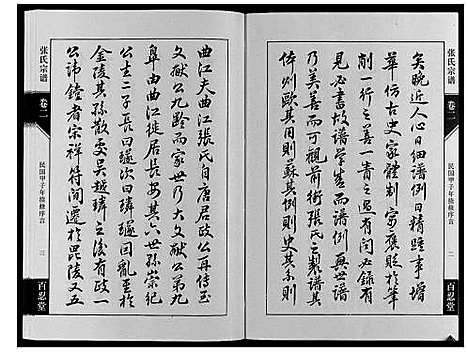 矣晚近人心日細譜例日精雖事增
華仿古史家體制實應貶於筆
削一行之善一青之過有聞必錄有
見必書故譜學益而譜例與世
乃美善而可觀前街張氏之製譜其
体例歐其用則蘇其例則史其系則
張氏宗譜
卷二
民国甲子年续修序言
二
百忍堂
曲江夫曲江張氏自唐居政公再傳至
文献公九齡而家世乃大文献公第九
皐由曲江徙居吳其六世孫崇紀
公支二子長曰璲次曰璘璲因亂至於
金陵其孫散處吳越璘之後有政一
公諱鐘者宗祥符閒遷於毘陵又五
張氏宗譜
卷二
民国甲子年续修序言
三
百忍堂